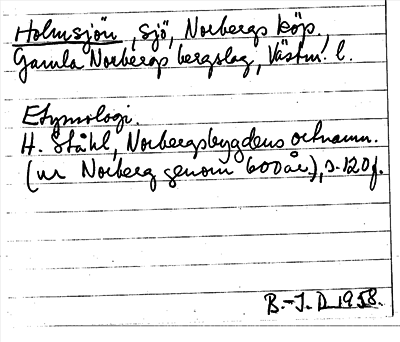 Holmsjön, sjö, Norbergs köp.,
Gamla Norbergs bergslag, Västm. l.
Etymologi.
H. Ståhl, Norbergsbygdens ortnamn.
(ur Norberg genom 600 år), s. 120 f.
B.-I. D 1958.